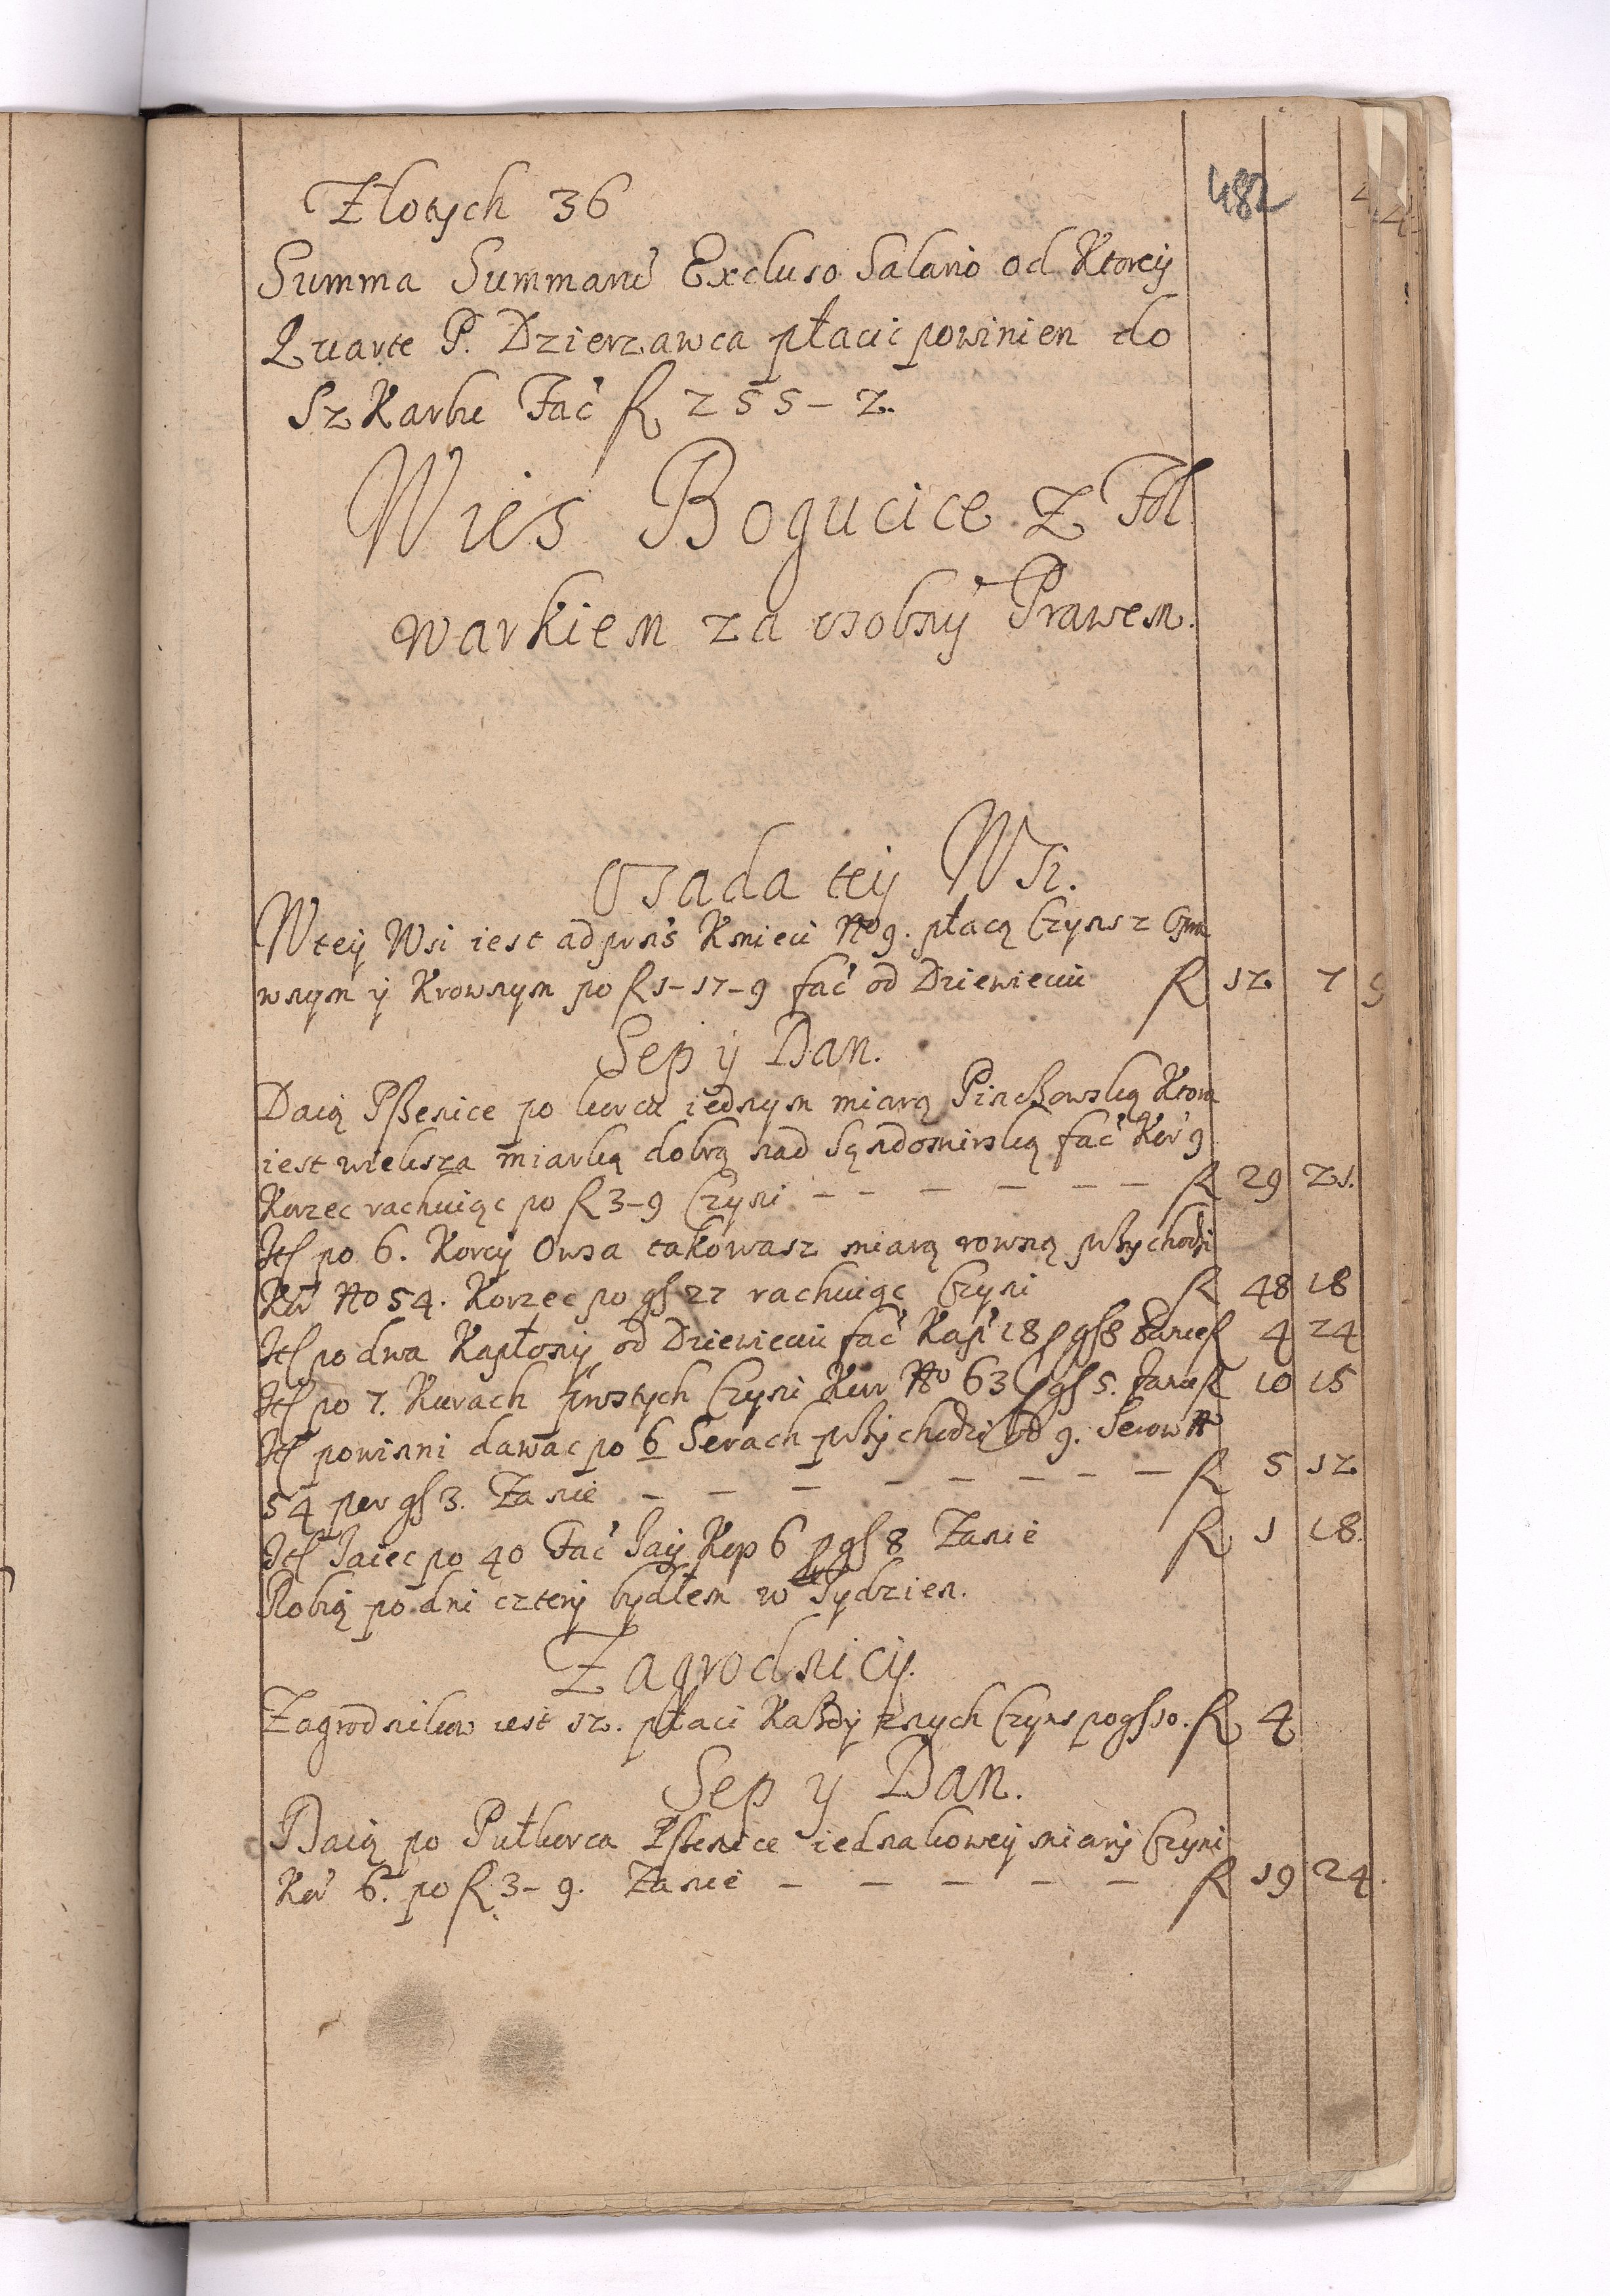 482
Złotych 36
Summa Summarũ Excluso Salario od Ktorey
Quarte P. Dzierzawca płacic powinien do
Szkarbu Fać fl 255-2.
Wies Bogucice z Fol
warkiem za osobnÿ Prawem.
Osada tey Wsi.
W tey Wsi iest ad prns Kmieci No 9. płacą Czynsz
wnym y Krownym po fl 1-17-9 fać od Dziewieciu fl 12 7 9
Sep y Dan.
Daią Pszenice po korcu iednym miarą Pinczowską Ktora
iest wieksza miarką dobrą nad Sąndomirską fać Kor 9
Korzec rachuiąc po fl 3-9 Czyni — — — — — — fl 29 21.
Itl po 6. Korcy Owsa takowasz miarą rowną przychodzi
Kor No 54. Korzec po gl 27 rachuiąc Czyni fl 48 18
Itl po dwa Kapłony od Dziewieciu fać Kap 18 p gl 8 Facit fl 4 24
Itl po 7. Kurach prostych Czyni Kur No 63 p gl 5. facit fl 10 15
Itl powinni dawac po 6 Serach przychodzi od 9. Serow No
54 per gl 3. Zanie — — — — — — — — fl 5 12
Itl Jaiec po 40 Fać Jay Kop 6 p gl 8 Zanie fl 1 18.
Robią po dni cztery bydłem w Tydzien.
Zagrodnicy.
Zagrodnikow iest 12. płaci Każdy znych Czyns po gl 10. fl 4
Sep y Dan.
Daią po Pułkorca Pszenice iednakowey miary Czyni
Kor 6. po fl 3-9. Zanie — — — — — fl 19 24.